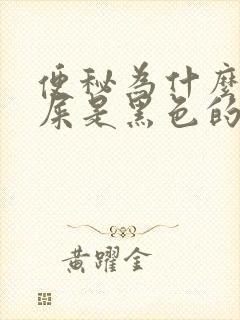 便秘為什麼
屎是黑色的
黃躍金